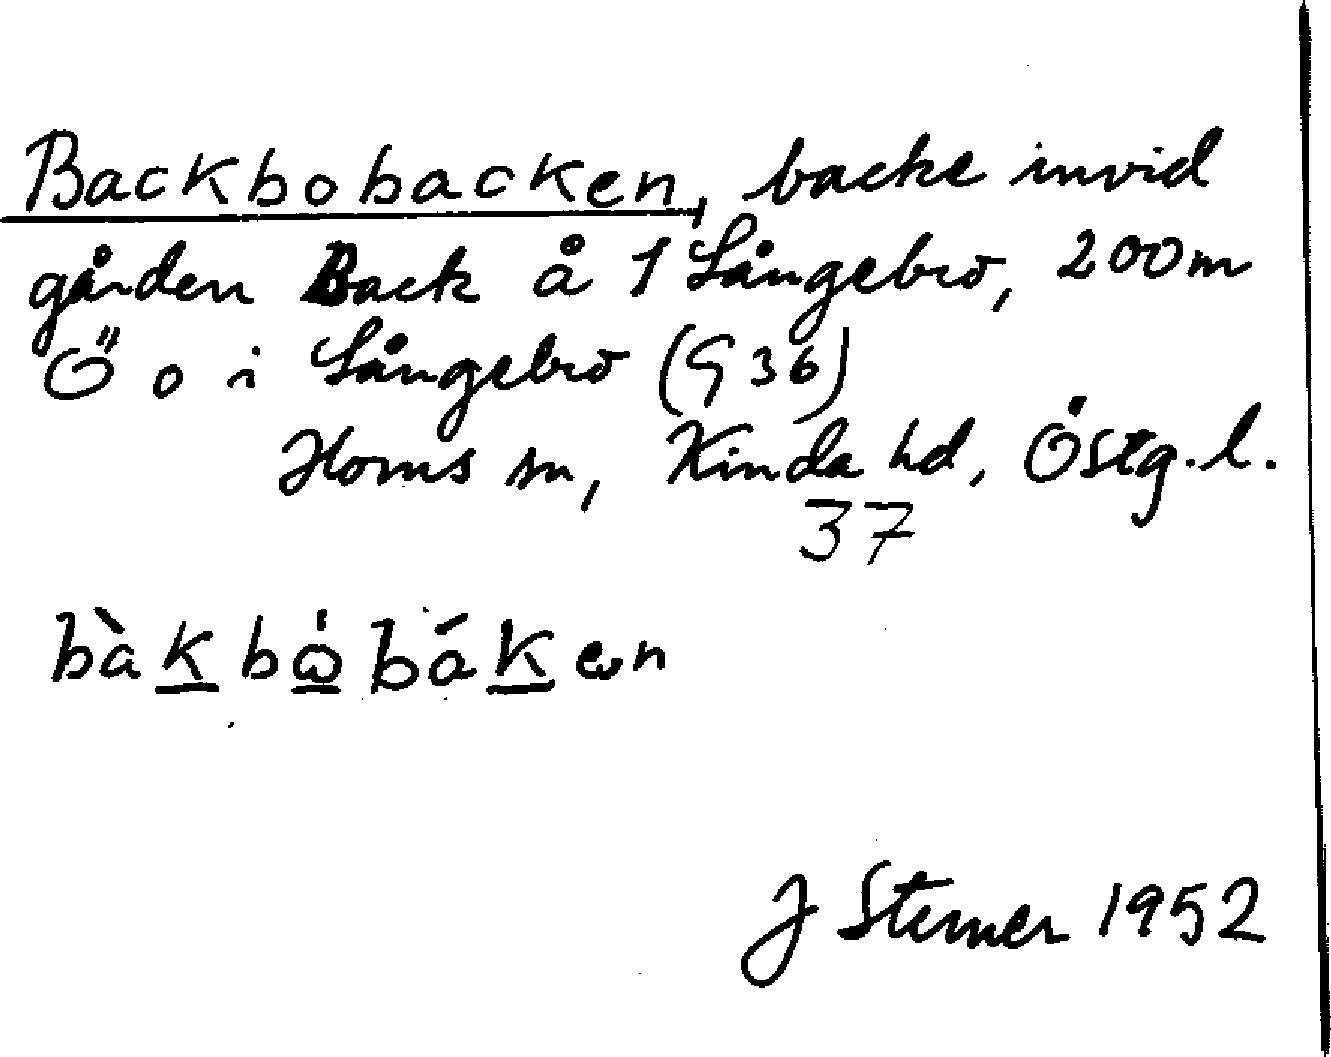 Backbobacken, backe invid
gården Back å 1 Långebro, 200m
Ö o i Långebro (G 36)
Horns sn, Kinda hd, Östg.l.
37
bàkbω̇báken
J Sterner 1952